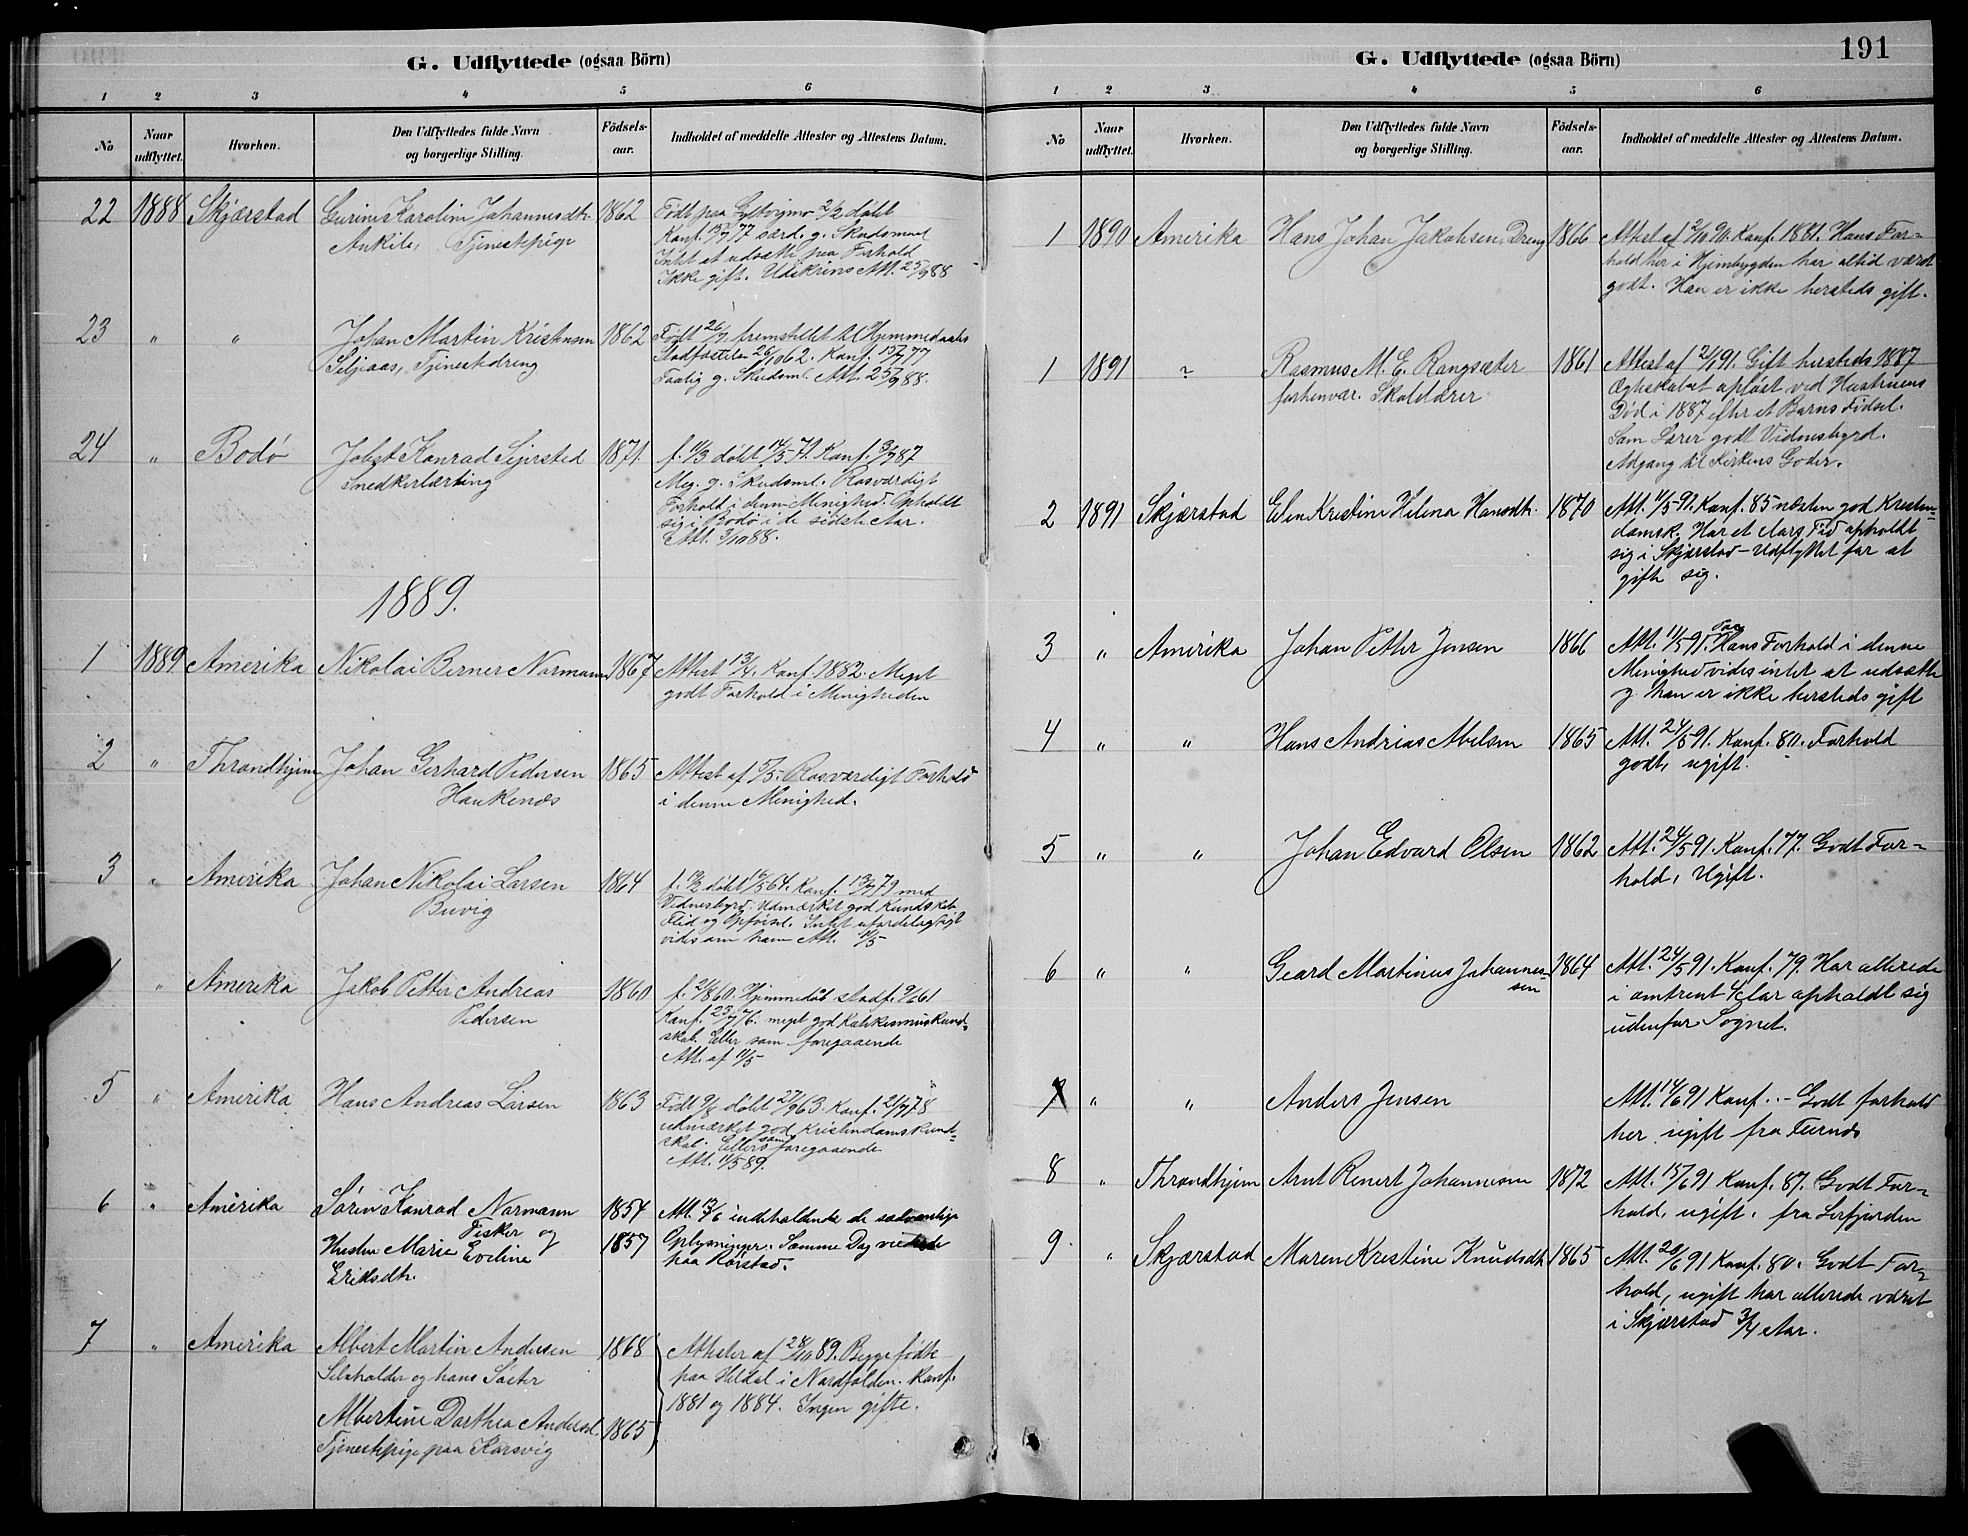 G. Udflyttede (ogsaa Börn)
1 2 3 4 5 6
No
Naar udflyttet.
Hvorhen.
Den Udflyttedes fulde Navn
og borgerlige Stilling.
Födsels-
aar.
Indholdet af meddelte Attester og Attestens Datum.
22 1888 Skjærstad Karolin Johannesdtr. 1862 Født paa 2/2 døbt
Tjenestepige Konf. 15/7 77 særd. g. Skudsmaal
Intet at udsætte paa Forhold
Ikke gift. Att. 25/9 88
23 " " Johan Martin Kristensen 1862 Født 26/7 fremstillet til Hjemmedaabs
Siljaas, Tjenestedreng Stadfæstelse 26/10 62. Konf. 15/7 77
g. Skudsml. Att. 25/9 88.
24 " Bodø Jobst Konrad Sejersted 1871. f. 11/3 døbt 14/5 71. Konf. 3/7 87
Snedkerlærling Meg. g. Skudsml. Rosværdigt
Forhold i denne Menighed. Opholdt
sig i Bodø i de sidste Aar.
Att. 3/10 88.
1889.
1 1889 Amerika Nikolai Berner Normann 1867 Attest 13/4. Konf. 1882. Meget
godt Forhold i Menigheden
2 " Throndhjem Johan Gerhard Pedersen 1865 Attest af 5/5 - Rosværdigt Forhold
Haukenæs i denne Menighed.
3 " Amerika Johan Nikolai Larsen 1864 f. 12/2 døbt 16/5 64. Konf. 13/7 79 med
Buvig Vidnesbyrd: Udmærket god Kundskab
Flid og Opførsel. Intet ufordelagtigt
vides om ham Att. 11/5
" Amerika Jakob Petter Andreas 1860 f. 21/8 60. Hjemmedøb stadf. 9/6 61
Pedersen Konf. 23/7 76. meget god Katekismuskund-
skab. Ellers som foregaaende
Att. af 11/5
5 " Amerika Hans Andreas Larsen 1863 Født 9/8 døbt 27/9 63. Konf. 21/7 78
udmærket god Kristendomskund-
skab. Ellers som foregaaende
Att. 11/5 89.
6 " Amerika Søren Konrad Normann 1854 Att. 13/6 indeholdende de sædvanlige
Fisker og
Hustru Marie Eveline 1857 Oplysninger. Samme Dag viede
Eriksdtr. paa Rørstad.
7 " Amerika Albert Martin Andersen 1868 Attester af 28/10 89. Begge fødte
og hans Søster paa Heldal i Nordfolden. Konf.
Albertine Dorthea Andersd. 1865 1881 og 1884. Ingen gifte.
Tjenestepige paa Korsvig
G. Udflyttede (ogsaa Börn)
191
1 2 3 4 5 6
No
Naar udflyttet.
Hvorhen.
Den Udflyttedes fulde Navn
og borgerlige Stilling.
Födsels-
aar.
Indholdet af meddelte Attester og Attestens Datum.
1 1890 Amerika Hans Johan Jakobsen, Dreng 1866 Attest af 2/10 90. Konf. 1881. Hans For-
hold her i Hjembygden har altid været
godt. Han er ikke hersteds gift.
1 1891 " Rasmus M. E. Rangsæter 1861 Attest af 2/1 91. Gift hersteds 1887
forhenvær. Skolelærer Ægteskabet opløst ved Hustruens
Død i 1887 efter et Barns Fødsel.
Som Lærer godt Vidnesbyrd.
Adgang til Kirkens Goder.
2 1891 Skjærstad Elen Kristine Helena Hansdtr. 1870 Att. 11/5 91. Konf. 85 næsten god Kristen-
domsk. Har et Aars Tid opholdt
sig i Skjærstad - Udflyttet for at
gifte sig.
3 " Amerika Johan Petter Jensen 1866 Att. 11/5 91. Paa Hans Forhold i denne
Menighed vides intet at udsætte
og han er ikke hersteds gift
4 " " Hans Andreas Abelsen 1865 Att. 24/5 91. Konf. 80. Forhold
godt, ugift.
5 " " Johan Edvard Olsen 1862 Att. 24/5 91. Konf. 77. Godt For-
hold, Ugift.
6 " " Geard Martinus Johannes- 1864 Att. 24/5 91. Konf. 79. Har allerede
sen i omtrent 4 Aar opholdt sig
udenfor Sognet.
7 " " Anders Jensen Att. 14/6 91 Konf. - Godt forhold
her ugift fra
8 " Throndhjem Arnt Renert Johannesen 1872 Att. 15/6 91 Konf. 87. Godt For-
hold, ugift. fra Leirfjorden
9 " Skjærstad Maren Kristine Knudsdtr. 1865 Att. 20/6 91 Konf. 80. Godt For-
hold, ugift har allerede været
i Skjærstad 3/4 Aar.